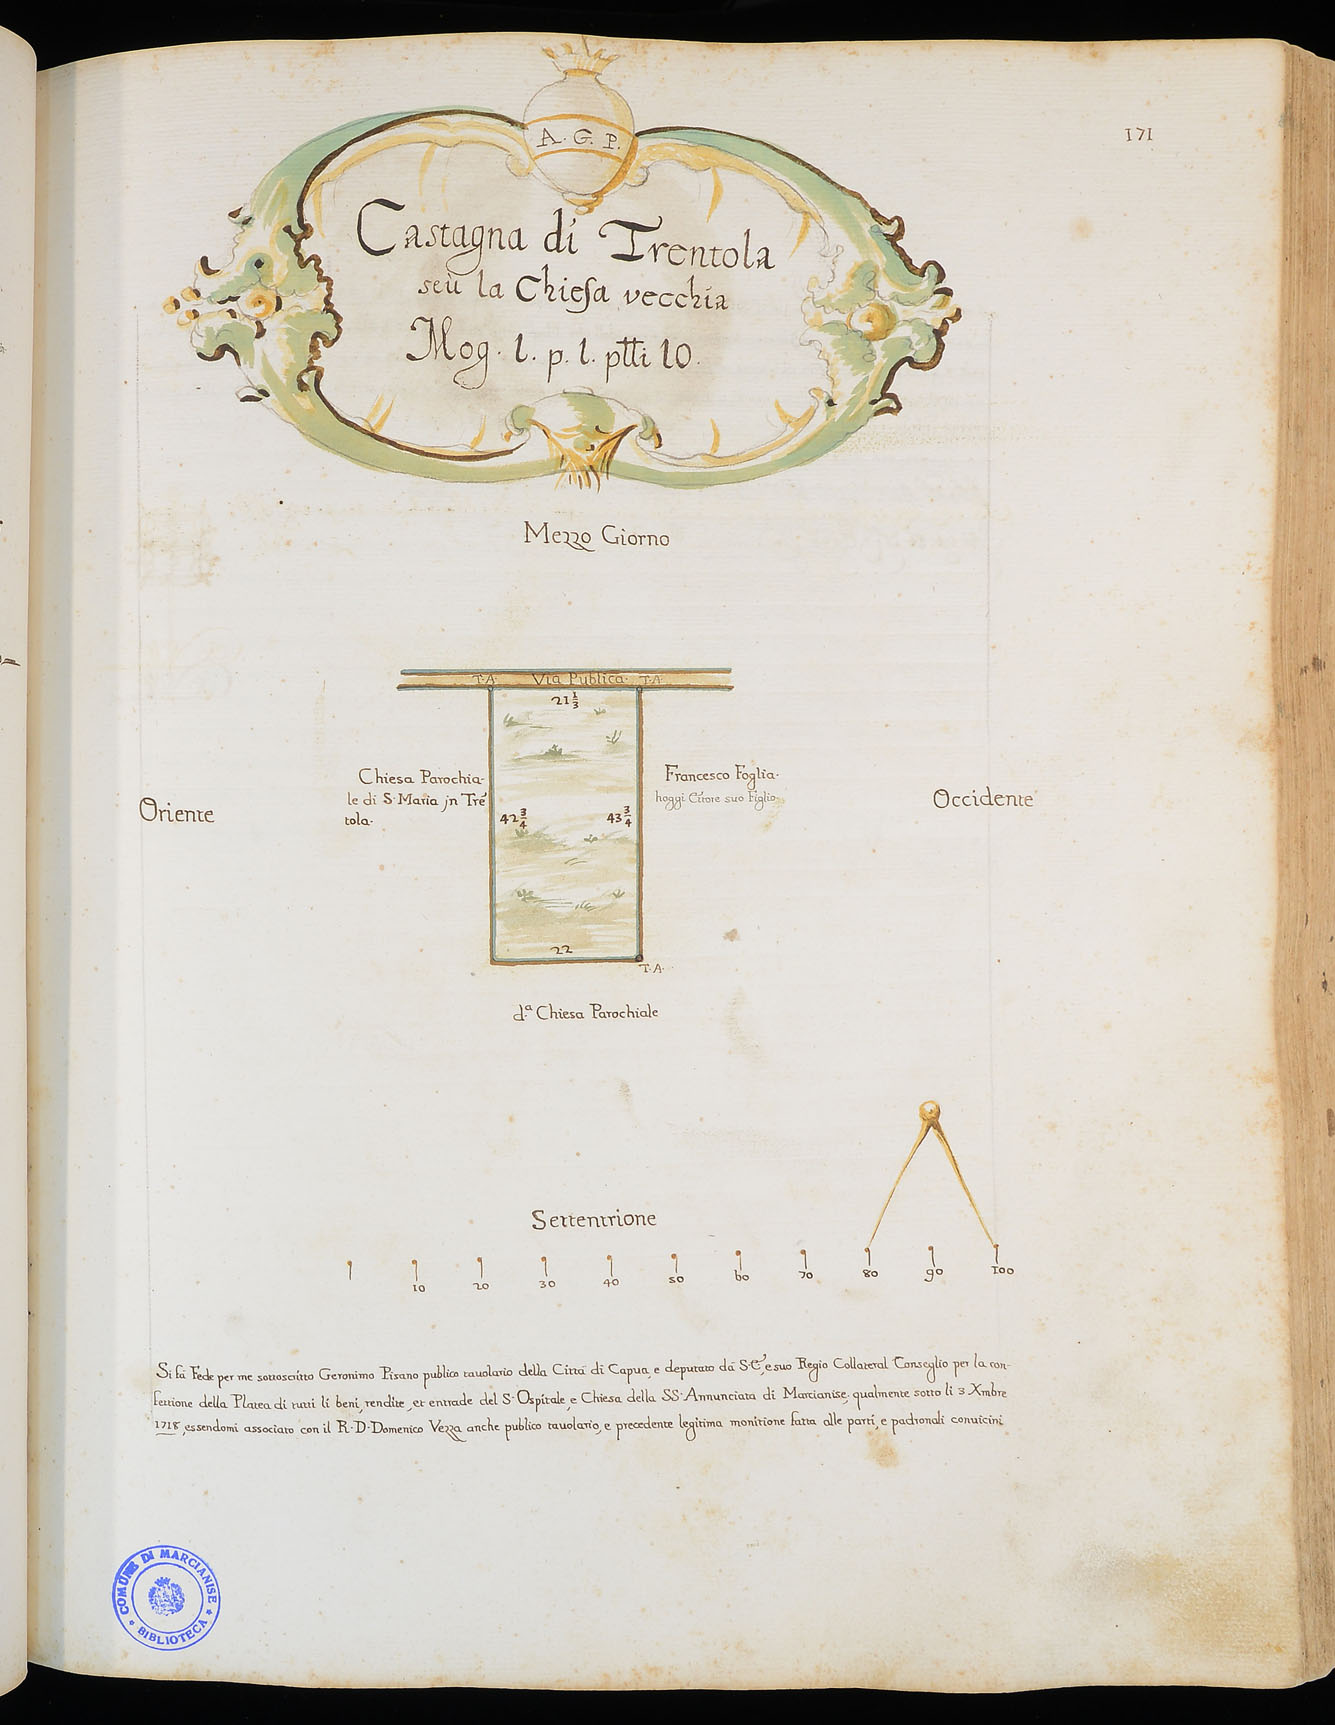 171
A. G. P.
Castagna di Trentola
seù la Chiesa vecchia
Mog. 1. p. 1. ptti 10.
Mezzo Giorno
T.A. Via Publica. T.A.
21 1/3
Chiesa Parochia-
le di S. Maria jn Tre
tola.
Francesco Foglia.
hoggi suo Figlio
Oriente
Occidente
42 3/4
43 3/4
22
T.A.
d.ª Chiesa Parochiale
Settentrione
10 20 30 40 50 60 70 80 90 100
Si fà Fede per me sottoscritto Geronimo Pisano publico tavolario della Città di Capua, e deputato dà S.E., e suo Regio Collateral Conseglio per la con-
fettione della Platea di tutti li beni, rendite, et entrade del S. Ospitale, e Chiesa della SS. Annunciata di Marcianise, qualmente sotto li 3 Xmbre
1718, essendomi associato con il R. D. Domenico Vezza anche publico tavolario, e precedente legitima monitione fatta alle parti, e padronali convicini
COMUNE DI MARCIANISE
BIBLIOTECA